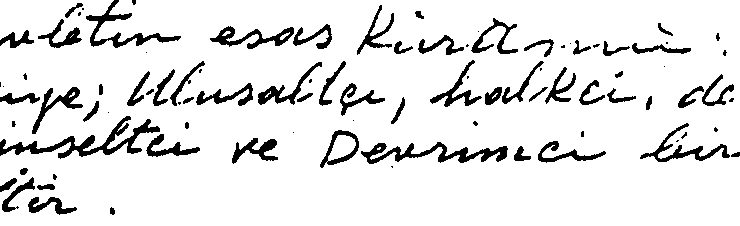 vletin esas Kuramı:
iye; Ulusaltçı, halkci, de
inseltci ve Devrimci bir
tir.